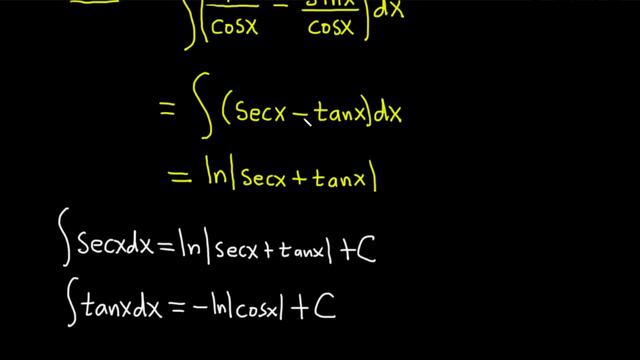 ∫(1/cosx − sinx/cosx)dx
= ∫(secx − tanx)dx
= ln|secx + tanx|
∫secxdx = ln|secx + tanx| + C
∫tanxdx = −ln|cosx| + C